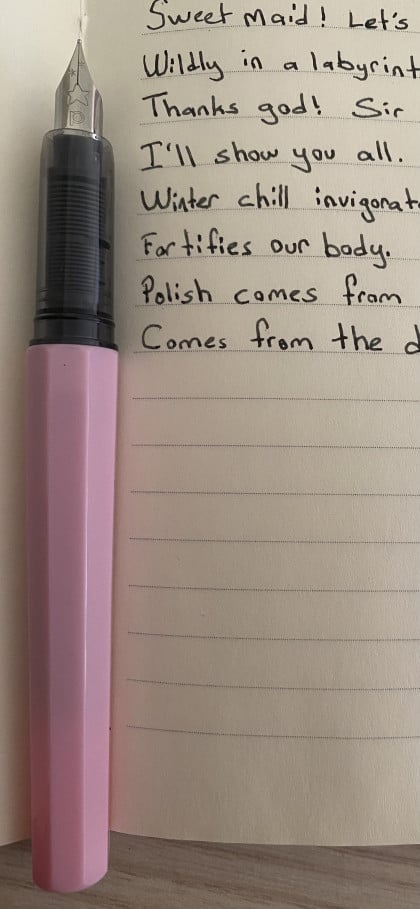 Sweet maid! Let's
Wildly in a labyrint
Thanks god! Sir
I'll show you all.
Winter chill invigorat
Fortifies our body.
Polish comes from
Comes from the d